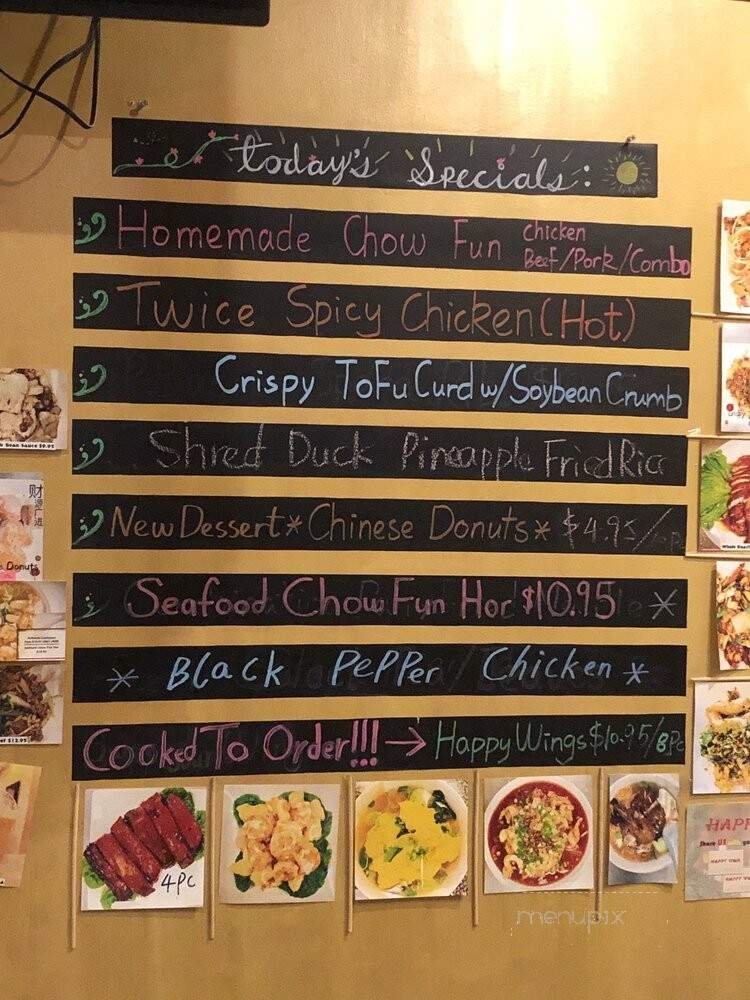 today's Specials:
Homemade Chow Fun chicken
Beef/Pork/Combo
Twice Spicy Chicken (Hot)
Crispy ToFu Curd w/Soybean Crumb
Shred Duck Pineapple Fried Rice
New Dessert * Chinese Donuts * $4.95/
Seafood Chow Fun Hor $10.95 *
* Black Pepper Chicken *
Cooked To Order!!! → Happy Wings $10.95/8Pc
4PC
Bean Sauce $9.95
财源广进
Donuts
$12.95
HAPP
menupix